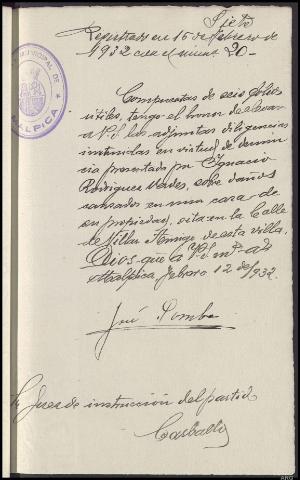 Siete
Registrado en 15 de febrero de
1932 con el núm. 20-
MUNICIPAL DE
MALPICA
Compuestas de seis folios
útiles, tengo el honor de elevar
a V.S. las adjuntas diligencias
instruidas en virtud de denun
cia presentada por Ignacio
Rodriguez Verdes, sobre daños
causados en una casa de
su propiedad, sita en la Calle
de Villar Amigo de esta villa.
Dios gue a V.S. m.s a.s
Malpica, febrero 12 de 1932.
José
Sr Juez de instrucción del partido
Carballo